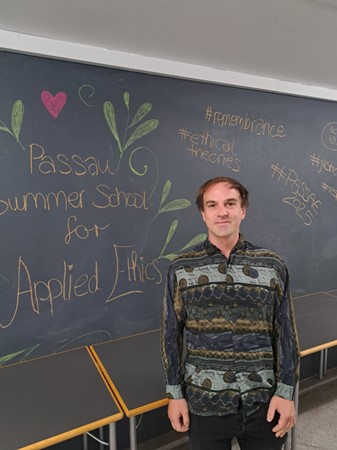 Passau
Summer School
for
Applied Ethics
#remembrance
#ethical
theories
#PaSSAE
2025